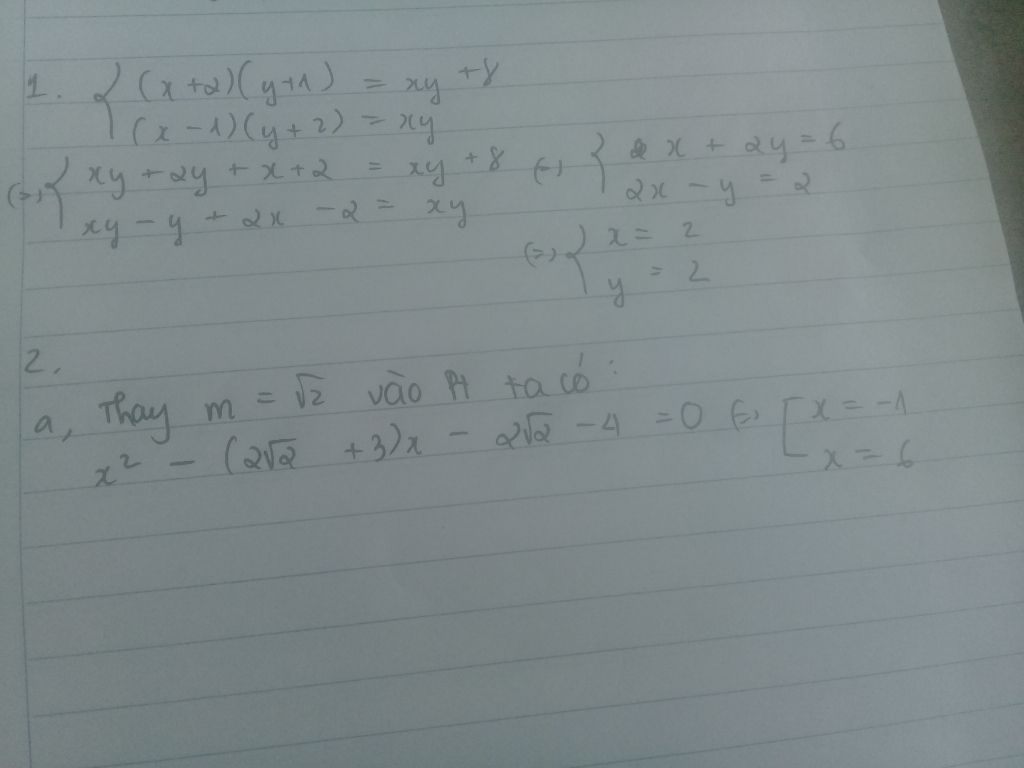 1. { (x+2)(y+1) = xy +8
(x-1)(y+2) = xy
(=) { xy + 2y + x + 2 = xy + 8 (=) { x + 2y = 6
xy - y + 2x - 2 = xy 2x - y = 2
(=) { x = 2
y = 2
2.
a, Thay m = √2 vào Pt ta có :
x² - (2√2 +3)x - 2√2 - 4 = 0 (=) [ x = -1
x = 6